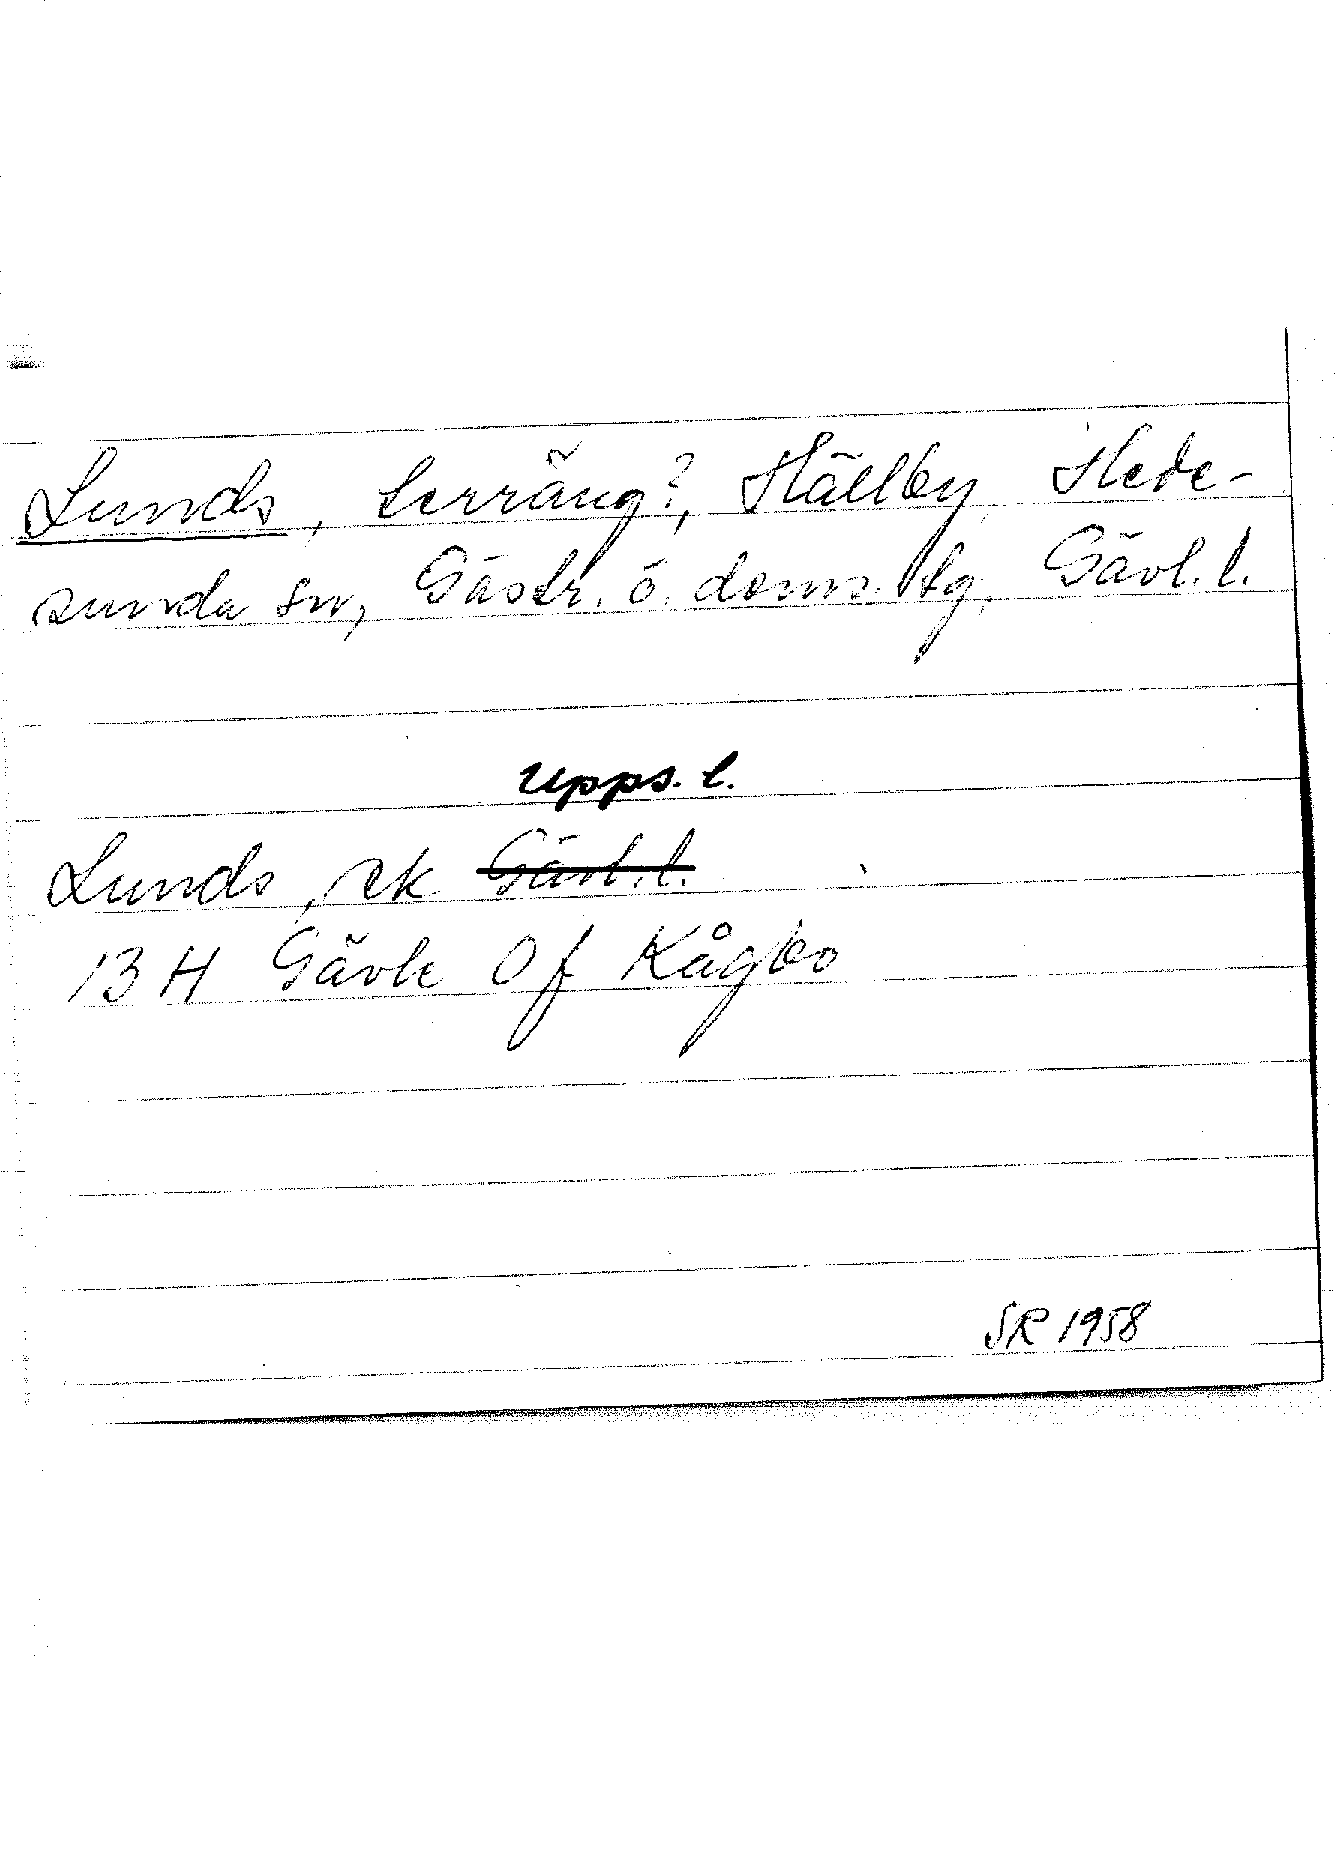 Lunds, terräng?, Hällby, Hede-
sunda sn, Gästr. ö. doms. tg, Gävl. l.
Upps. l.
Lunds, ek Gävl. l.
13 H Gävle 0f Kågbo
SR 1958